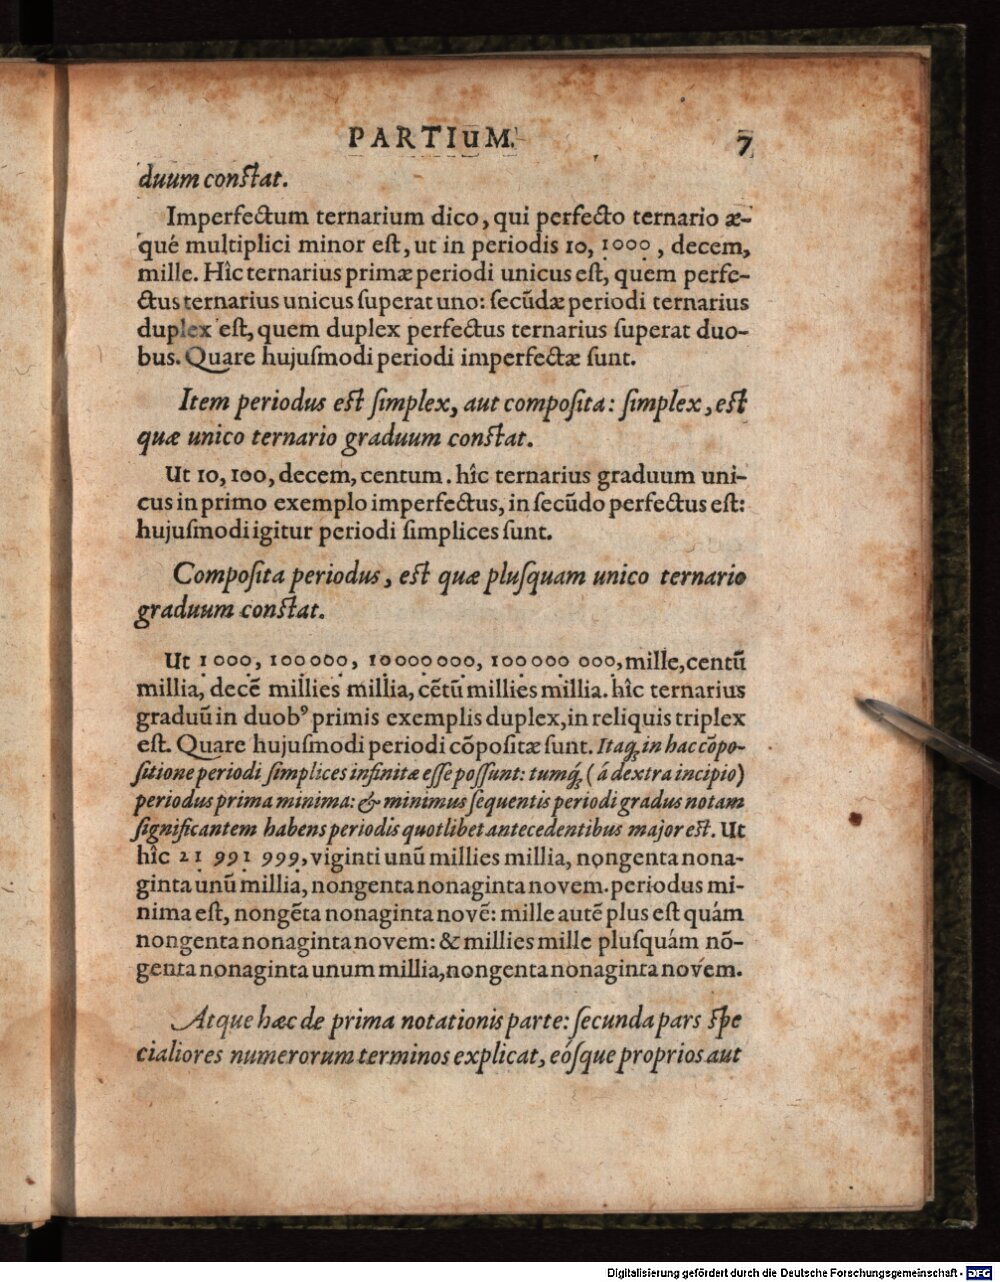 PARTIUM. 7
duum constat.
Imperfectum ternarium dico, qui perfecto ternario æ-
qué multiplici minor est, ut in periodis 10, 1000, decem,
mille. Hîc ternarius primæ periodi unicus est, quem perfe-
ctus ternarius unicus superat uno: secūdæ periodi ternarius
duplex est, quem duplex perfectus ternarius superat duo-
bus. Quare hujusmodi periodi imperfectæ sunt.
Item periodus est simplex, aut composita: simplex, est
quæ unico ternario graduum constat.
Ut 10, 100, decem, centum. hîc ternarius graduum uni-
cus in primo exemplo imperfectus, in secūdo perfectus est:
hujusmodi igitur periodi simplices sunt.
Composita periodus, est quæ plusquam unico ternario
graduum constat.
Ut 1000, 100000, 10000000, 100000 000, mille, centū
millia, decē millies millia, cētū millies millia. hîc ternarius
graduū in duobꝰ primis exemplis duplex, in reliquis triplex
est. Quare hujusmodi periodi cōpositæ sunt. Itaq́; in hac cōpo-
sitione periodi simplices infinitæ esse possunt: tumq́; (á dextra incipio)
periodus prima minima: & minimus sequentis periodi gradus notam
significantem habens periodis quotlibet antecedentibus major est. Ut
hîc 21 991 999, viginti unū millies millia, nongenta nona-
ginta unū millia, nongenta nonaginta novem. periodus mi-
nima est, nongēta nonaginta novē: mille autē plus est quám
nongenta nonaginta novem: & millies mille plusquám nō-
genta nonaginta unum millia, nongenta nonaginta novem.
Atque hæc de prima notationis parte: secunda pars spe
cialiores numerorum terminos explicat, eósque proprios aut
Digitalisierung gefördert durch die Deutsche Forschungsgemeinschaft - DFG